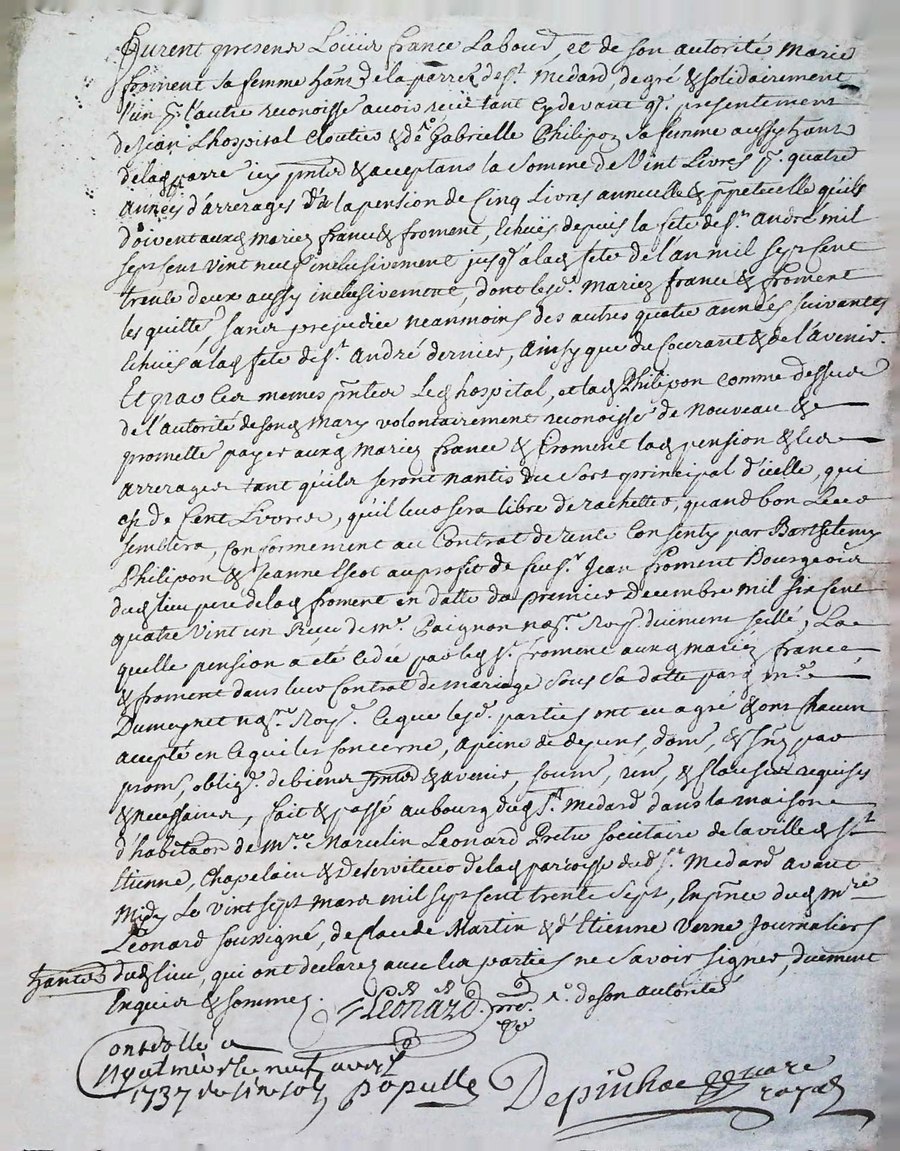 furent presens Louis france Labour, et de son autorité Marie
froment sa femme hans de la parr. de st. Medard, de gré & solidairement
l'un p. l'autre reconoisse avoir receu tant cydevant q. presentement
de Jean Lhospital Cloutier & de Gabrielle Philipon sa femme aussy hans
de lad parre icy pntes & acceptans la Somme de Vint Livres p. quatre
années d'arrerages de la pension de Cinq Livres annuelle & ppetuelle qu'ils
doivent auxd mariez france & froment, Echües depuis la fete de st. André mil
sept sent vint neuf inclusivement jusq. a lad fete de l'an mil sept sent
trente deux aussy inclusivement, dont lesd. mariez france & froment
les quitte, sans prejudice neanmoins des autres quatre années suivantes
Echües a lad fete de st. André dernier, Ainsy que du Courant & de l'avenir.
Et par les memes pntes Led hospital, et lad Philipon comme dessus
de l'autorité de sond mary volontairement reconoisse de Nouveau &
promette payer auxd mariez france & froment lad pension & les
arrerages tant qu'ils seront nantis du sort principal d'icelle, qui
est de Cent Livres, qu'il leur sera libre de rachetter, quand bon Leur
semblera, Conformement au Contrat de rente Consenty par Barthelemy
Philipon & Jeanne Escot au profit de feu sr. Jean froment Bourgeois
dud lieu pere de lad froment en datte du premier Decembre mil six sent
quatre Vint un Receu de me. Paignon nore. Royal duement scellé; La
quelle pension a eté cedée par led sr. froment auxd mariez france
& froment dans leur Contrat de mariage sous sa datte par me.
Dumaynet nore. Royal. Ce que lesd. parties ont eu agré & ont chacun
accepté en ce qui les concerne, a peine de depens, dom, & Int, par
prom, oblig. de biens pntes & avenir, soum, ren, & clauses requises
& necessaires, fait & passé au bourg dud st. Medard dans la maison
d'habitaon de mre. Marcelin Leonard Pretre societaire de la ville de St
Etienne, Chapelain & Deserviteur de lad parroisse dud st. Medard avant
Midy Le Vint sept mars mil sept sent trente sept, En pnce dud mre
Leonard soussigné, de Claude Martin & d'Etienne Verne Journaliers
hantes dud lieu, qui ont declarez avec les parties ne savoir signer, duement
Enquis & sommez.
Leonard. pre. de son autorité
Controllé a
St Galmier le neuf avril
1737 Populle
Depinhac notaire
royal